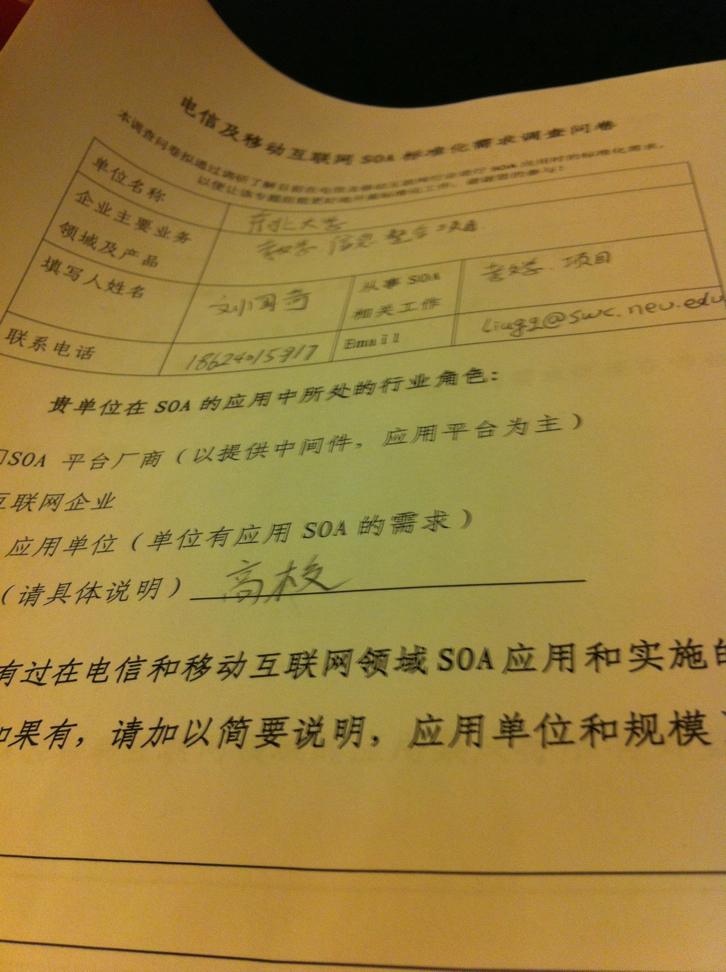 电信及移动互联网 SOA 标准化需求调查问卷
本调查问卷拟通过调研了解目前在电信及移动互联网行业进行 SOA 应用时的标准化需求，
以便让该专题组能更好地开展标准化工作，谢谢您的参与！
单位名称 东北大学
企业主要业务
领域及产品 信息整合项目
填写人姓名 刘国奇 从事 SOA
相关工作 项目
联系电话 Email liugq@swc.neu.edu
贵单位在 SOA 的应用中所处的行业角色：
□SOA 平台厂商（以提供中间件，应用平台为主）
互联网企业
应用单位（单位有应用 SOA 的需求）
（请具体说明）高校
有过在电信和移动互联网领域 SOA 应用和实施的
如果有，请加以简要说明，应用单位和规模